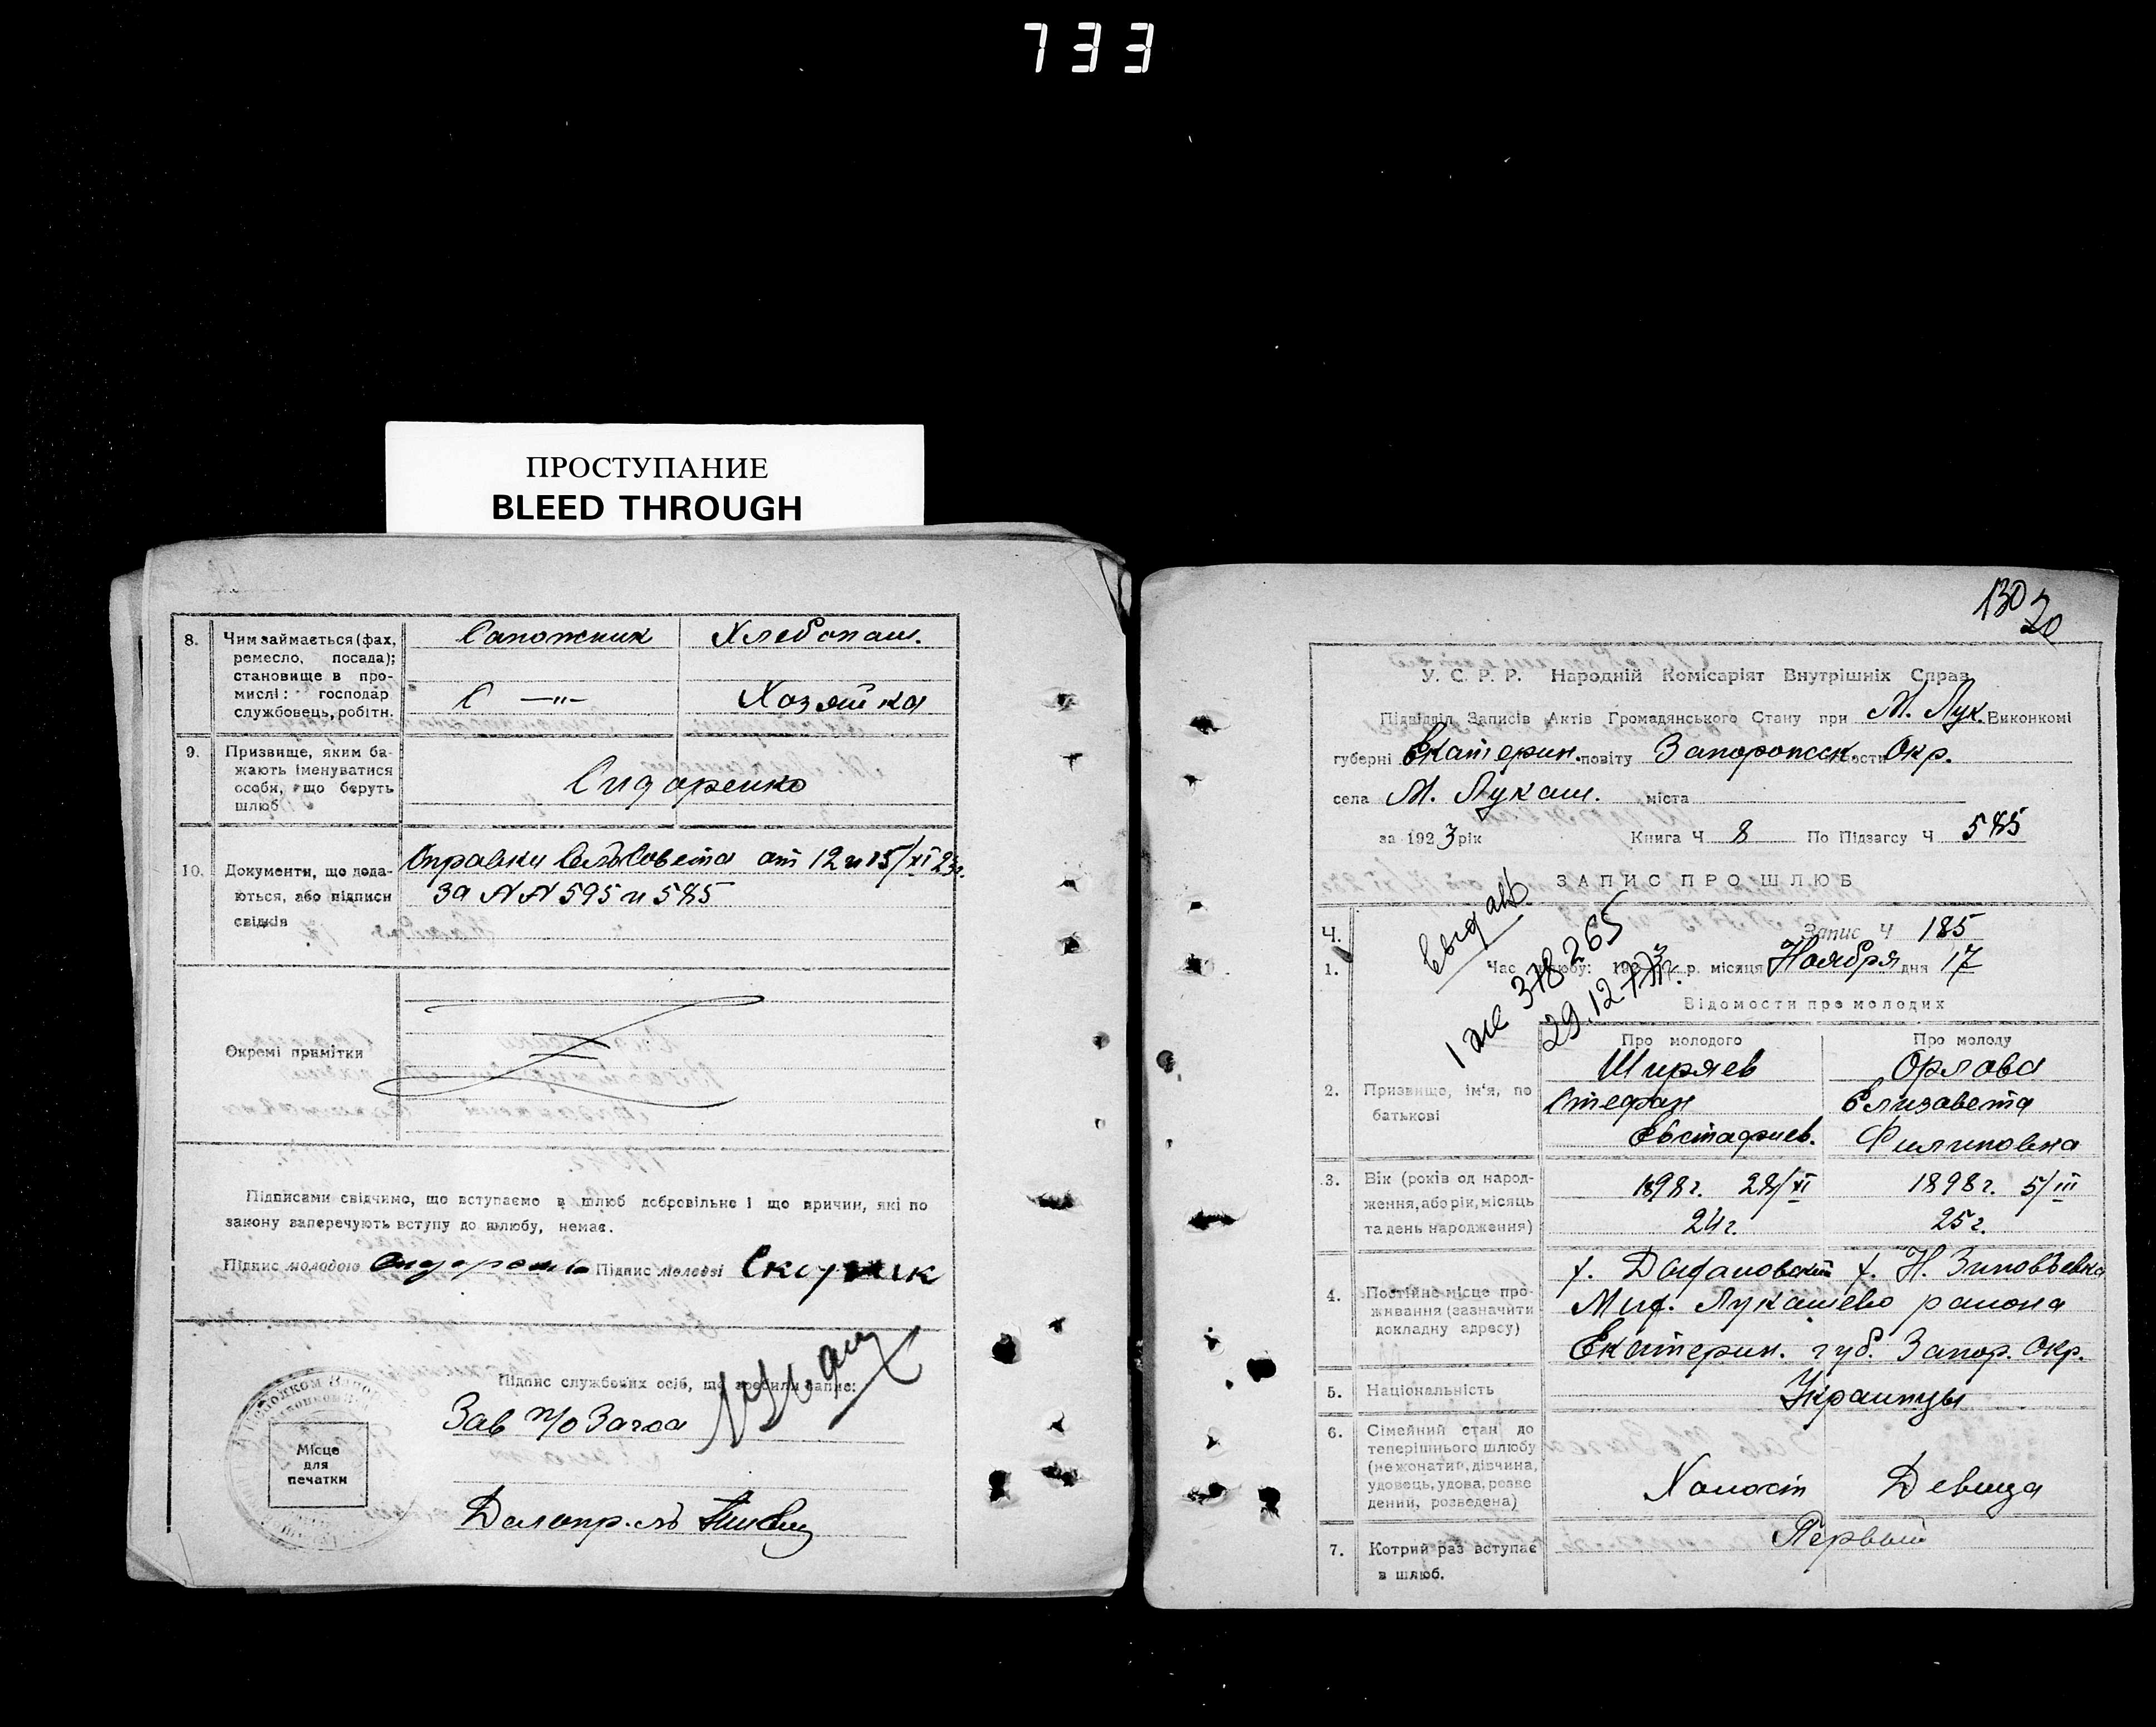 733
ПРОСТУПАНИЕ
BLEED THROUGH
8. Чим займається (фах, ремесло, посада); становище в промислі: господар службовець, робітн.
Сапожник Хлебопаш.
С —"— Хозяйка
9. Призвище, яким ба-
жають іменуватися
особи, що беруть
шлюб
Сидоренко
10. Документи, що дода-
ються, або підписи
свідків
Справки СельСовета от 12 и 15/XI 23г.
за NN 595 и 585
Окремі примітки
Підписами свідчимо, що вступаємо в шлюб добровільне і що причин, які по
закону заперечують вступу до шлюбу, немає.
Підпис молодого Сидоренко Підпис молодої
Підпис службових осіб, що зробили запис:
Зав п/о Загса
Місце
для
печатки
Делопр-ль
130
20
У. С. Р. Р. Народній Комісаріят Внутрішніх Справ
Підвідділ Записів Актів Громадянського Стану при М. Лук. Виконкомі
губерні Екатерин. повіту Запорожск. волости Окр.
села М. Лукаш. міста
за 1923 рік Книга Ч 8 По Підзагсу Ч 585
ЗАПИС ПРО ШЛЮБ
Ч. Запис Ч 185
1. Час шлюбу: 1923 р. місяця Ноября дня 17
378265
29.12.
Відомости про молодих
Про молодого Про молоду
2. Призвище, ім'я, по
батькові
Ширяев Орлова
Стефан Елизавета
Евстафиев. Филиповна
3. Вік (років од народ-
ження, або рік, місяць
та день народження)
1898г. 28/XI 1898г. 5/III
24г. 25г.
4. Постійне місце про-
живання (зазначити
докладну адресу)
х. х. Н. Зиновьевка
Мих. Лукашево района
Екатерин. губ. Запор. Окр.
5. Національність Украинцы
6. Сімейний стан до
теперішнього шлюбу
(нежонатий, дівчина,
удовець, удова, розве
дений, розведена)
Холост Девица
7. Котрий раз вступає
в шлюб.
Первый